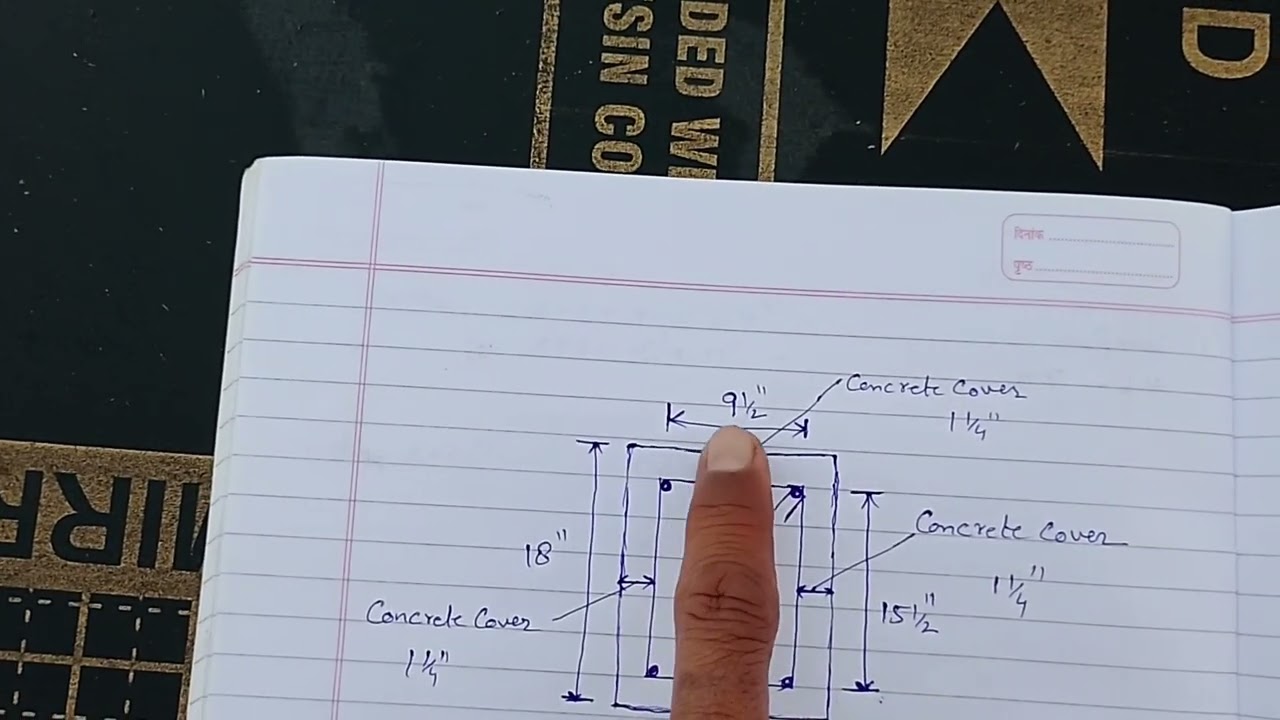 DED WI
SIN CO
D
MIRR
दिनांक
पृष्ठ
9 1/2"
Concrete Cover
1 1/4"
18"
Concrete Cover
1 1/4"
15 1/2"
Concrete Cover
1 1/4"